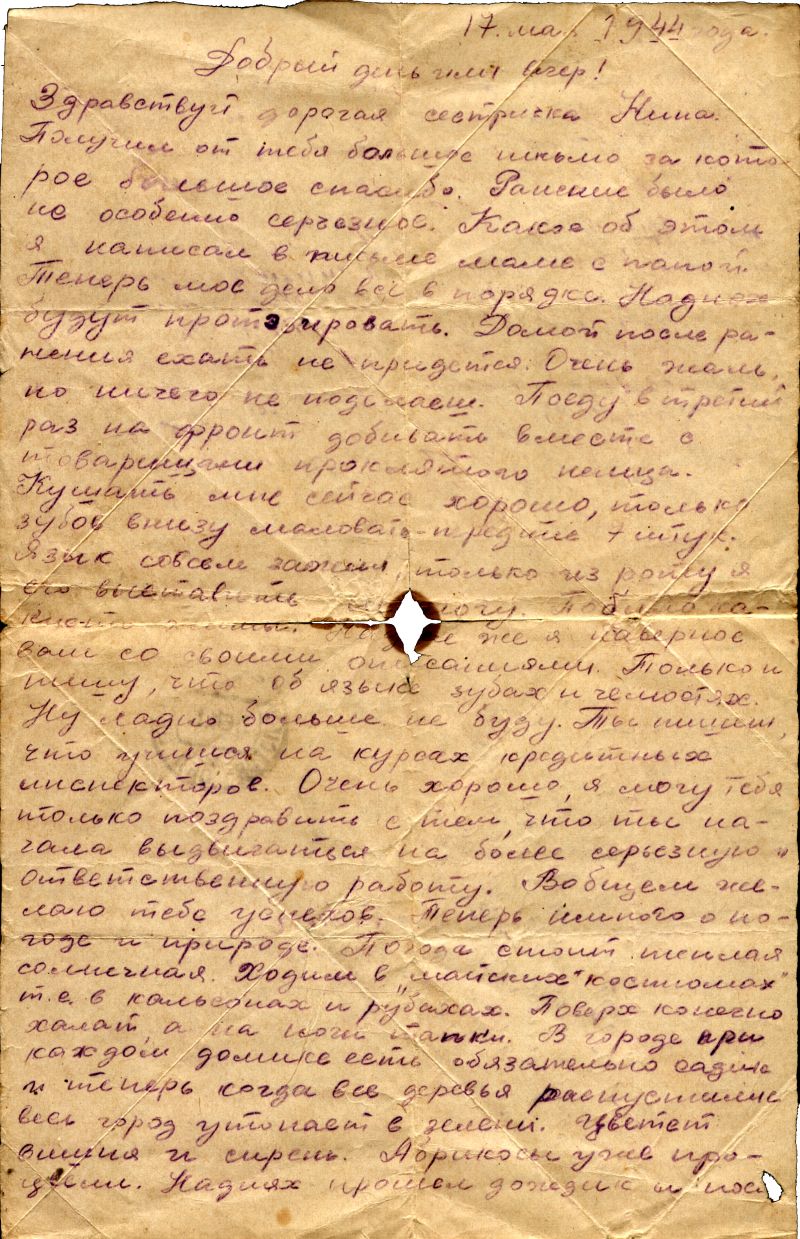 17. мая 1944 года.
Добрый день или вечер!
Здравствуй дорогая сестричка Нина.
Получил от тебя большое письмо за кото-
рое большое спасибо. Ранение было
не особенно серьезное. Какое об этом
я написал в письме маме с папой.
Теперь мое дело все в порядке. Наднях
будут протэзировать. Домой после ра-
нения ехать не придется. Очень жаль,
но ничего не поделаеш. Поеду в третий
раз на фронт добивать вместе с
товарищами проклятого немца.
Кушать мне сейчас хорошо, только
зубов внизу маловато передних 7 штук.
Язык совсем зажил, только из рота я
его выставить не могу. По
же я наверное
вам со своими описаниями. Только и
пишу, что об языке зубах и челюстях.
Ну ладно больше не буду. Ты пишеш,
что учишся на курсах кредитных
инспекторов. Очень хорошо, я могу тебя
только поздравить с тем, что ты на-
чала выдвигаться на более серьезную и
ответственную работу. Вобщем же-
лаю тебе успехов. Теперь немного о по-
годе и природе. Погода стоит теплая
солнечная. Ходим в "майских" костюмах"
т.е. в кальсонах и рубахах. Поверх конечно
халат, а на ноги тапки. В городе при
каждом домике есть обязательно садик
и теперь когда все деревья распустились
весь город утопает в зелени. Цветет
вишня и сирень. Абрикосы уже про-
цвели. Наднях прошел дождик и